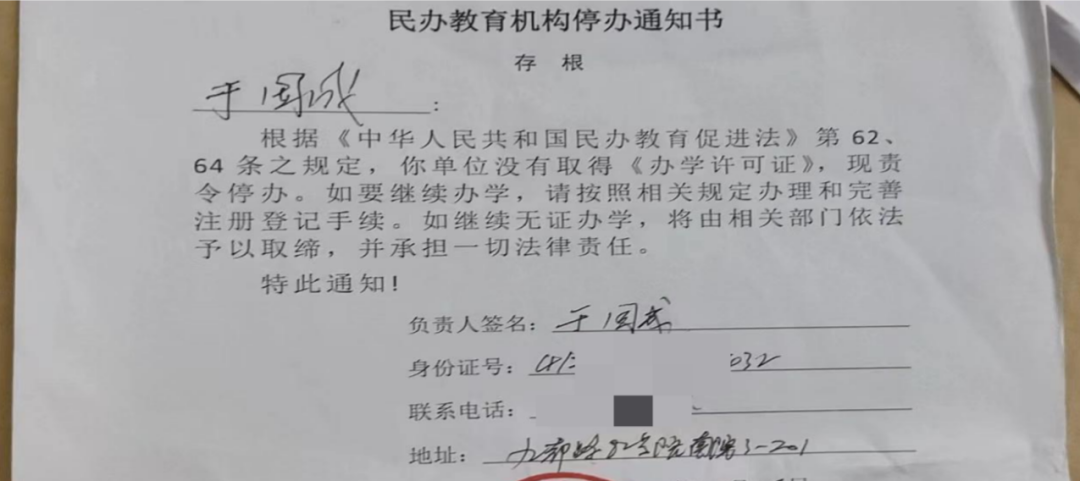 民办教育机构停办通知书
存 根
于国成:
根据《中华人民共和国民办教育促进法》第 62、
64 条之规定，你单位没有取得《办学许可证》，现责
令停办。如要继续办学，请按照相关规定办理和完善
注册登记手续。如继续无证办学，将由相关部门依法
予以取缔，并承担一切法律责任。
特此通知!
负责人签名: 于国成
身份证号: 032
联系电话:
地址: 九都路82号院南 3-201